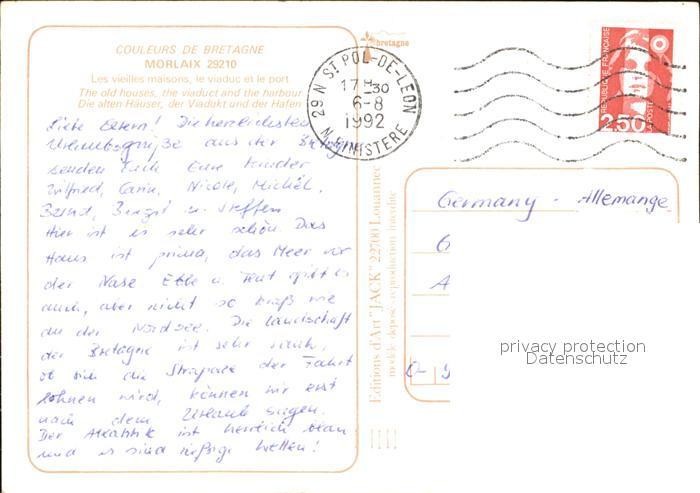 COULEURS DE BRETAGNE
MORLAIX 29210
Les vieilles maisons, le viaduc et le port
The old houses, the viaduct and the harbour
Die alten Häuser, der Viadukt und der Hafen
Liebe Eltern! Die herzlichsten
Urlaubsgrüße aus der Bretagne
senden Euch Eure Kinder
Wilfried, Carin, Nicole, Michél,
Bernd, Birgit u. Steffen
Hier ist es sehr schön. Das
Haus ist prima, das Meer vor
der Nase Ebbe u. Flut gibt es
auch, aber nicht so kraß wie
an der Nordsee. Die Landschaft
der Bretagne ist sehr rauh,
ob sich die Strapaze der Fahrt
lohnen wird, können wir erst
nach dem Urlaub sagen.
Der Atlantik ist herrlich blau
und es sind riesige Wellen!
bretagne
29 N ST POL-DE-LEON
17 H 30
6-8
1992
N. FINISTERE
Editions d'Art "JACK" 22700 Louannec
modèle déposé - reproduction interdite
REPUBLIQUE FRANÇAISE
2,50
LA POSTE
Germany - Allemange
G
A
D-
privacy protection
Datenschutz